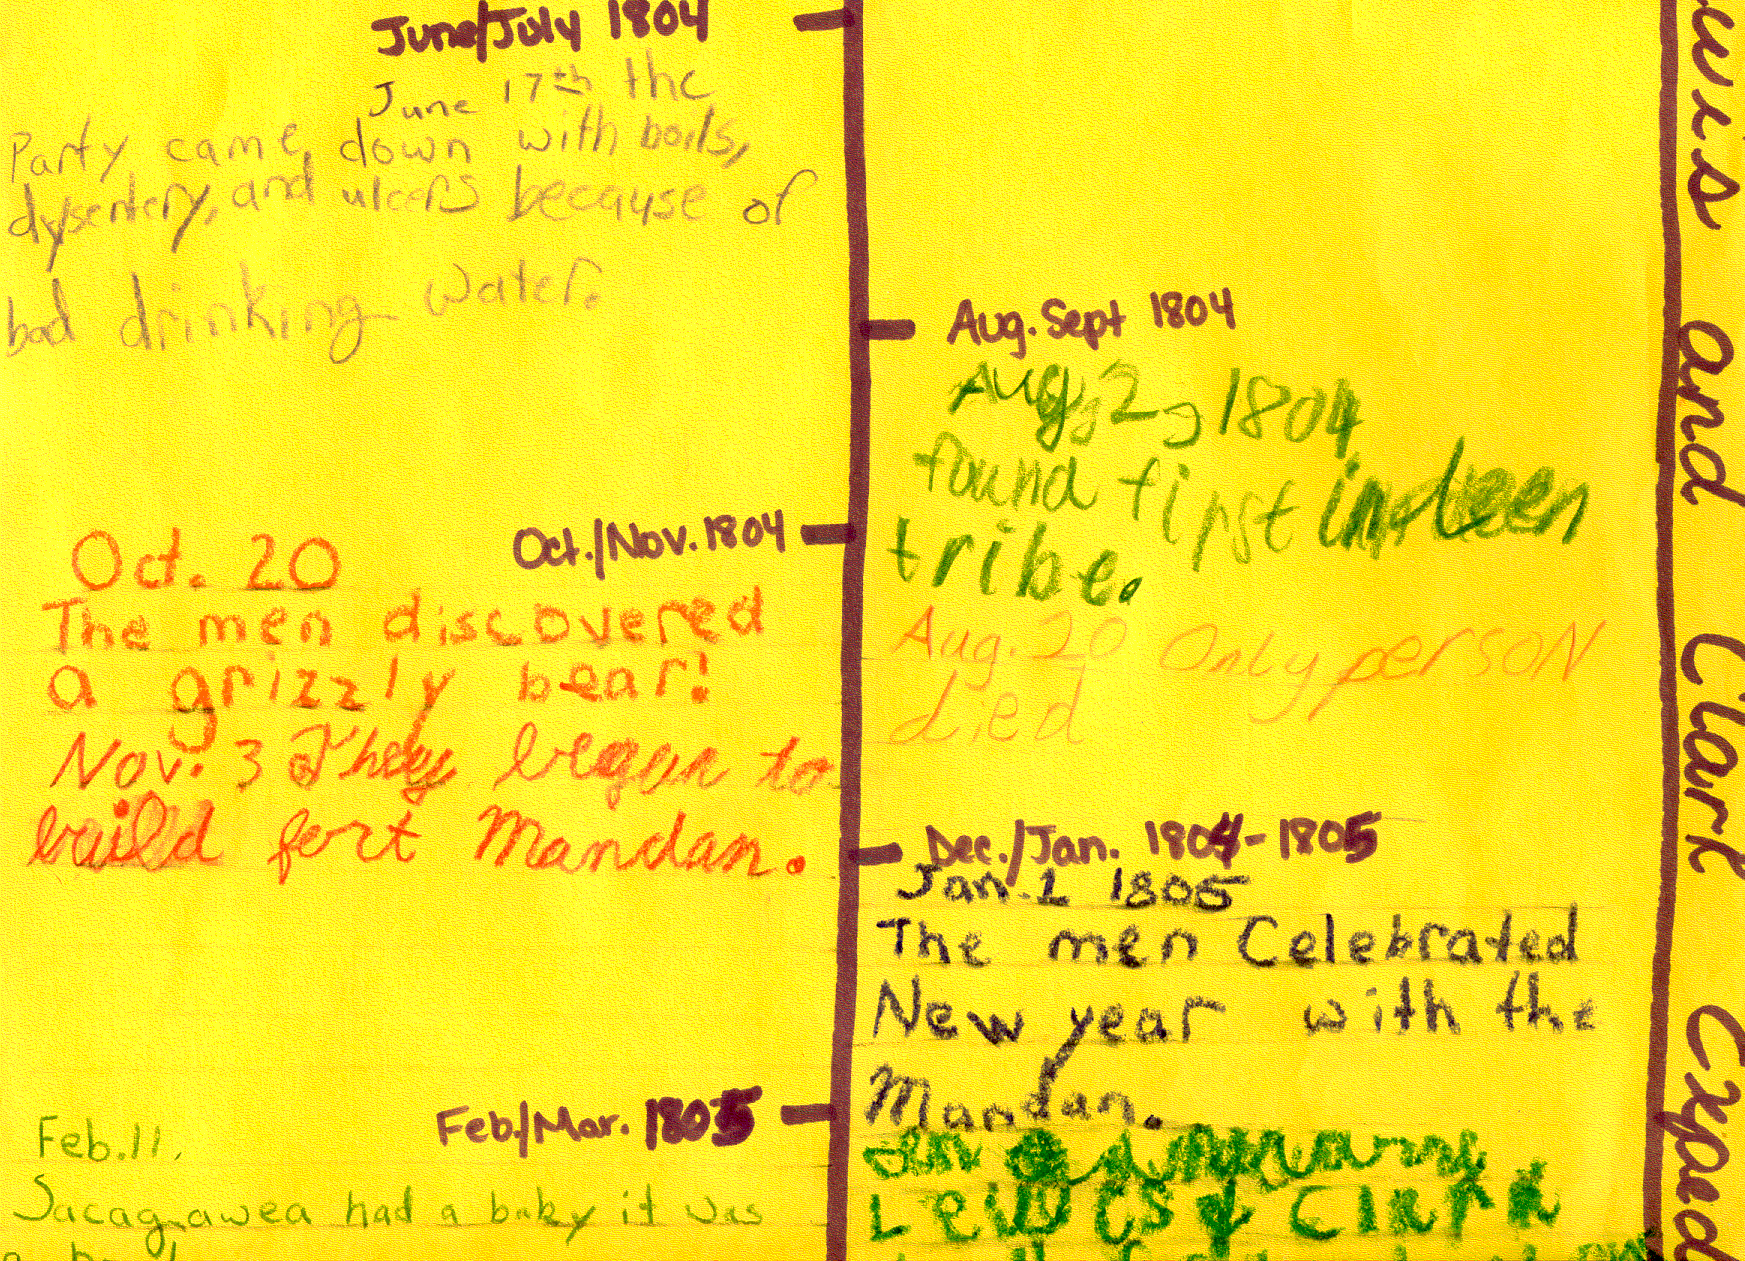 June/July 1804
June 17th the
Party came down with boils,
dysentery, and ulcers because of
bad drinking water.
Aug. Sept 1804
Aug, 2, 1804
found first indeen
tribe.
Aug. 20 Only person
died
Oct./Nov. 1804
Oct. 20
The men discovered
a grizzly bear!
Nov. 3 They began to
build fort Mandan.
Dec./Jan. 1804-1805
Jan. 1 1805
The men Celebrated
New year with the
Mandan.
Clark
Feb/Mar. 1805
Feb. 11,
Sacagawea had a baby it was
and Clark